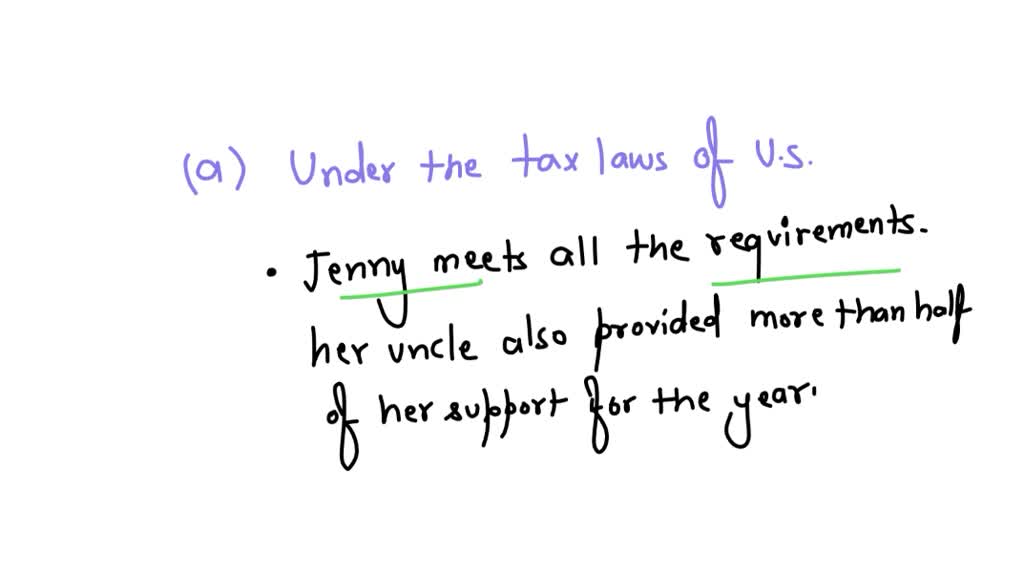 (a) Under the tax laws of U.S.
• Jenny meets all the requirements.
her uncle also provided more than half
of her support for the year.